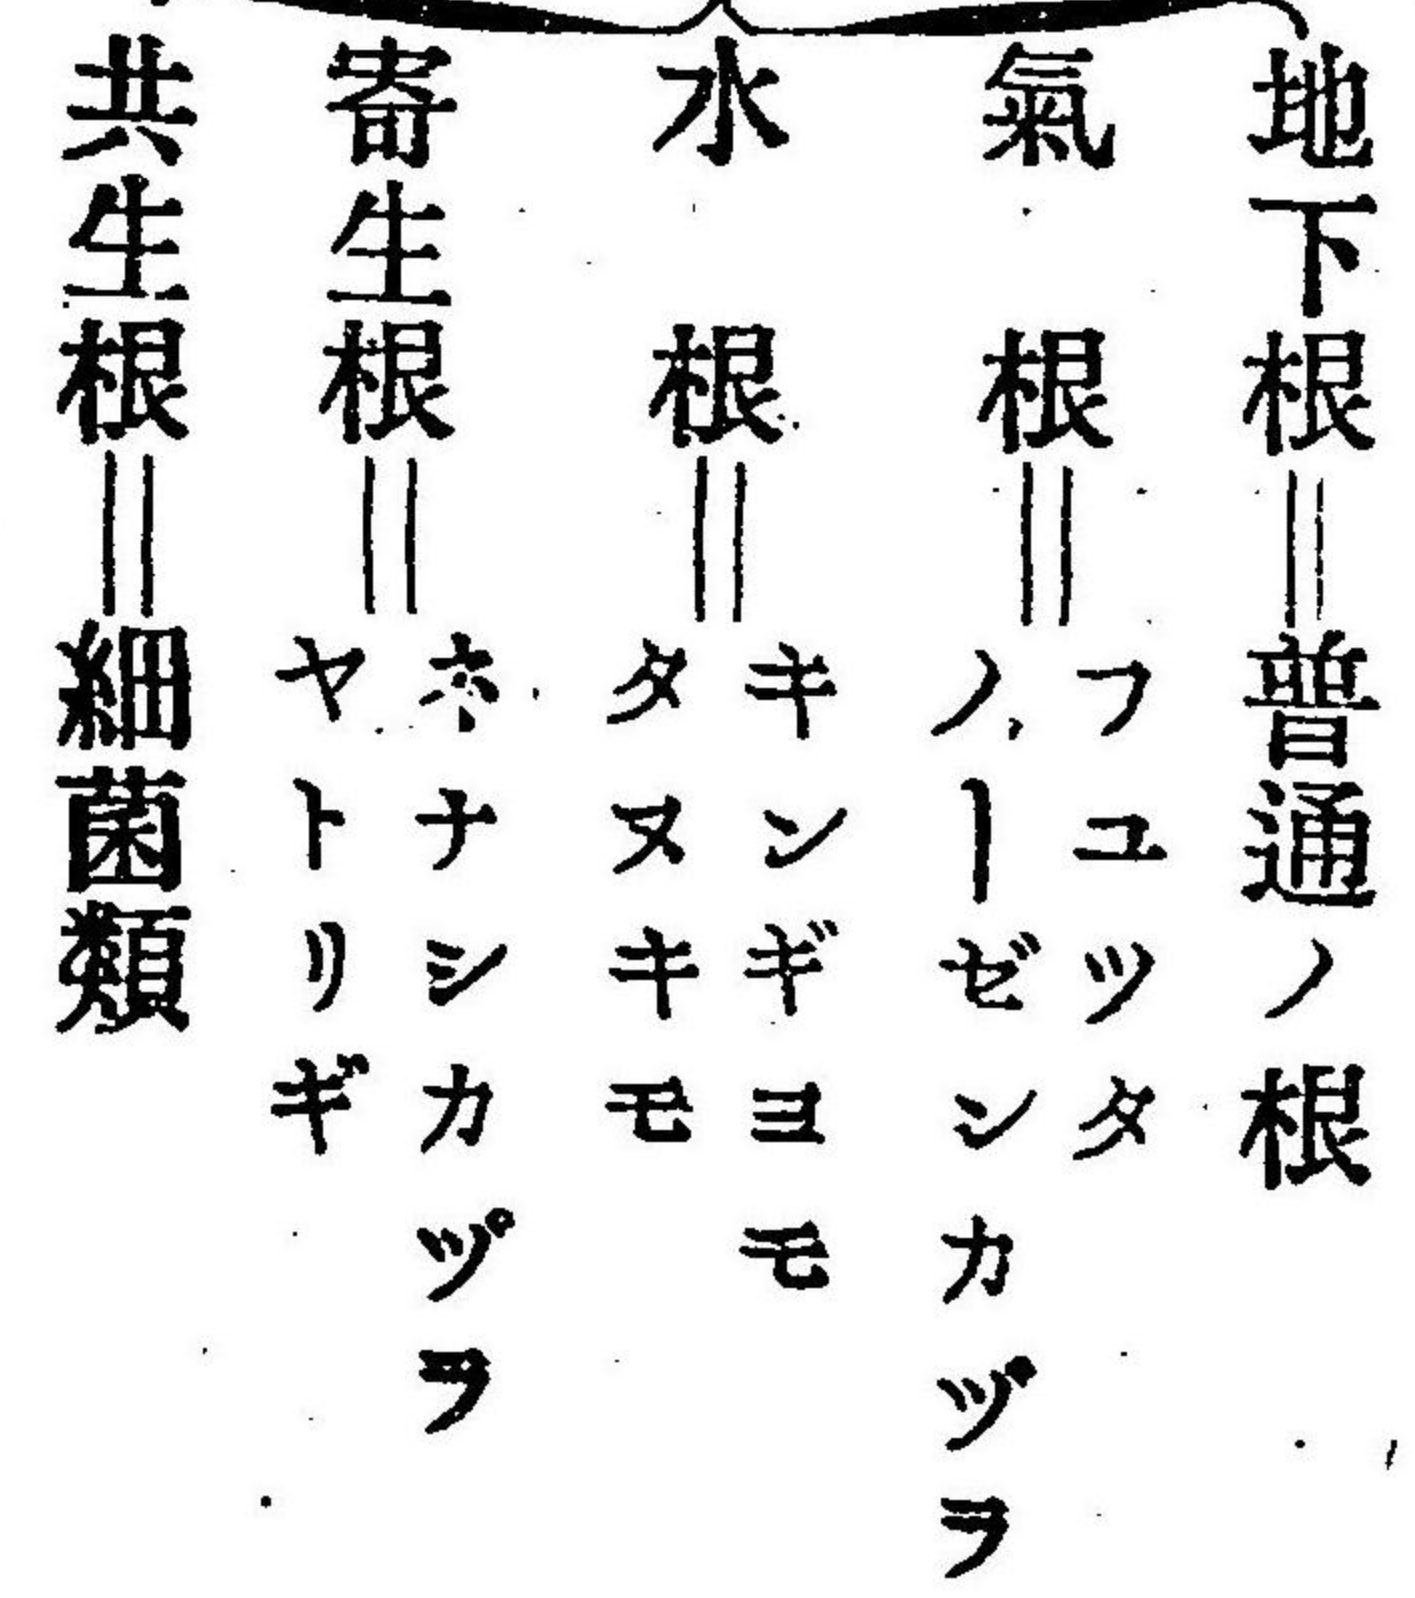 地下根＝普通ノ根
氣根＝フユヅタ
ノーゼンカヅラ
水根＝キンギヨモ
タヌキモ
寄生根＝ネナシカヅラ
ヤトリギ
共生根＝細菌類